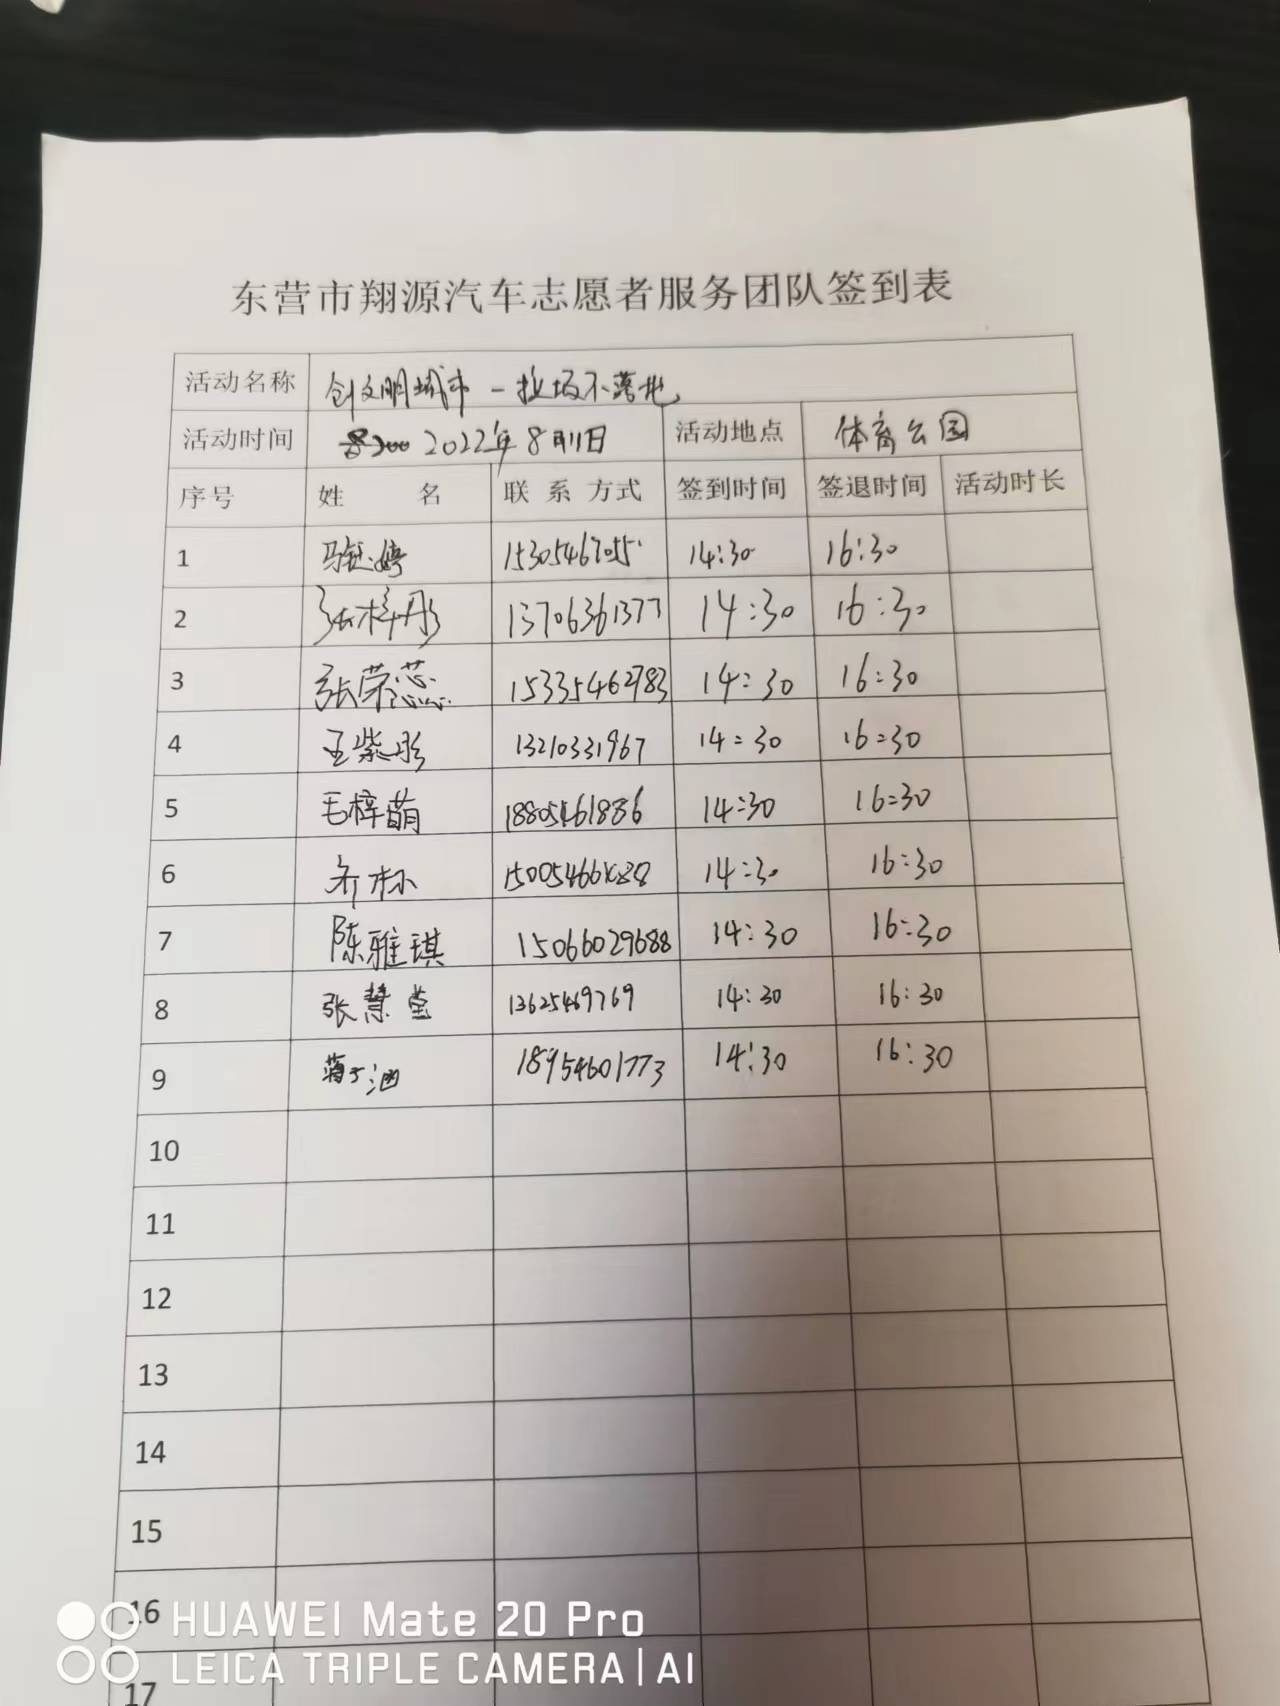 东营市翔源汽车志愿者服务团队签到表
活动名称 创文明城市-垃圾不落地
活动时间 2022年8月11日 活动地点 体育公园
序号 姓 名 联系方式 签到时间 签退时间 活动时长
1 马钰婷 15305467055 14:30 16:30
2 张梓彤 13706361377 14:30 16:30
3 张荣蕊 15335462783 14:30 16:30
4 王紫彤 13210331967 14:30 16:30
5 毛梓萌 18805461886 14:30 16:30
6 14:30 16:30
7 陈雅琪 15066029688 14:30 16:30
8 张慧莹 13625469769 14:30 16:30
9 18954601773 14:30 16:30
10
11
12
13
14
15
16
17
HUAWEI Mate 20 Pro
LEICA TRIPLE CAMERA | AI